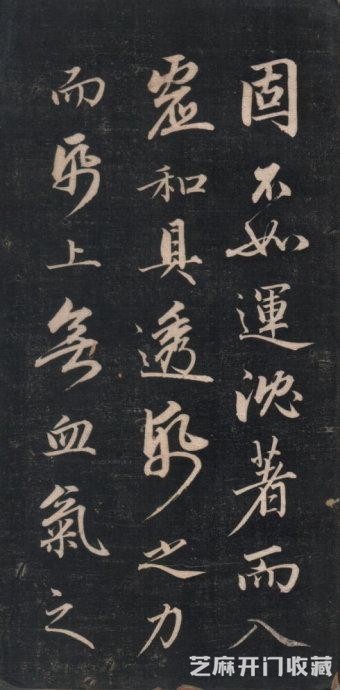 固不如運沈著而入
虛和具透紙之力
而紙上無血氣之
芝麻开门收藏